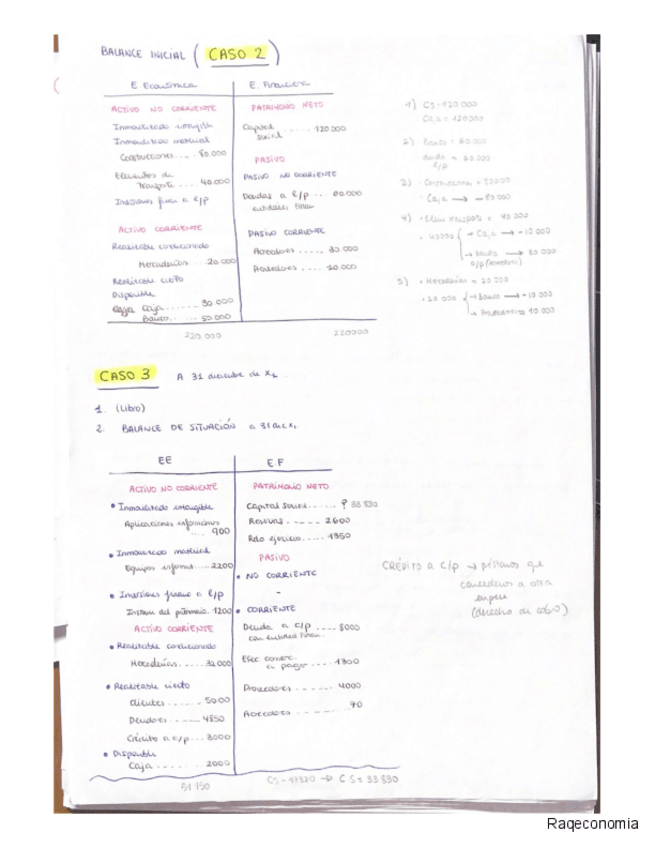 BALANCE INICIAL ( CASO 2 )
E Económica E. Financiera
ACTIVO NO CORRIENTE
Inmovilizado intangible
Inmovilizado material
Construcciones.... 80.000
Elementos de
transporte ... 40.000
Inversiones finan a l/p
ACTIVO CORRIENTE
Realizable condicionado
Mercaderías..... 20.000
Realizable cierto
Disponible
Caja ....... 30.000
Banco...... 50.000
220.000
PATRIMONIO NETO
Capital
social ..... 120.000
PASIVO
PASIVO NO CORRIENTE
Deudas a l/p .... 60.000
entidades finan
PASIVO CORRIENTE
Acreedores ..... 30.000
Proveedores .... 10.000
220000
1) CS = 120 000
Caja = 120000
2) Banco = 60 000
deuda = 60 000
l/p
3) · Construcciones =
· Caja →
4) · Elem transporte = 40 000
· 40000 → Caja → - 10 000
→ deuda → 30 000
5) · Mercaderías = 20 000
· 20 000 → Banco → - 10 000
→ Proveedores = 10 000
CASO 3 A 31 diciembre de X1.
1. (Libro)
2. BALANCE DE SITUACIÓN a 31 dic X1
EE E.F
ACTIVO NO CORRIENTE
• Inmovilizado intangible
Aplicaciones informáticas
.... 900
• Inmovilizado material
Equipos informa.... 2200
• Inversiones financ a l/p
Instrum del patrimonio. 1200
ACTIVO CORRIENTE
• Realizable condicionado
Mercaderías..... 32000
• Realizable cierto
Clientes ...... 5000
Deudores ---- 4850
Crédito a c/p... 3000
• Disponible
Caja ....... 2000
51 150
PATRIMONIO NETO
Capital social...... ? 33 830
Reservas..---- 2600
Rdo ejercicio..... 1350
PASIVO
• NO CORRIENTE
-
• CORRIENTE
Deuda a c/p ---- 8000
con entidad finan.
Efec comerc.
a pagar .... 1300
Proveedores ----- 4000
Acreedores -------- 70
CS = 33 830
CRÉDITO a c/p → préstamos que
concedemos a otra
empresa
(derecho de cobro)
Raqeconomia